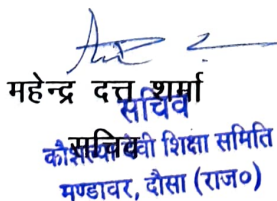 महेन्द्र दत्त शर्मा
सचिव
सचिव
कौशल्या देवी शिक्षा समिति
मण्डावर, दौसा (राज०)